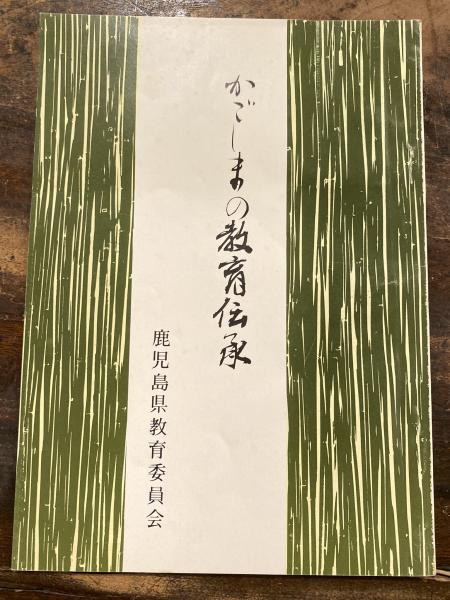 かごしまの教育伝承
鹿児島県教育委員会